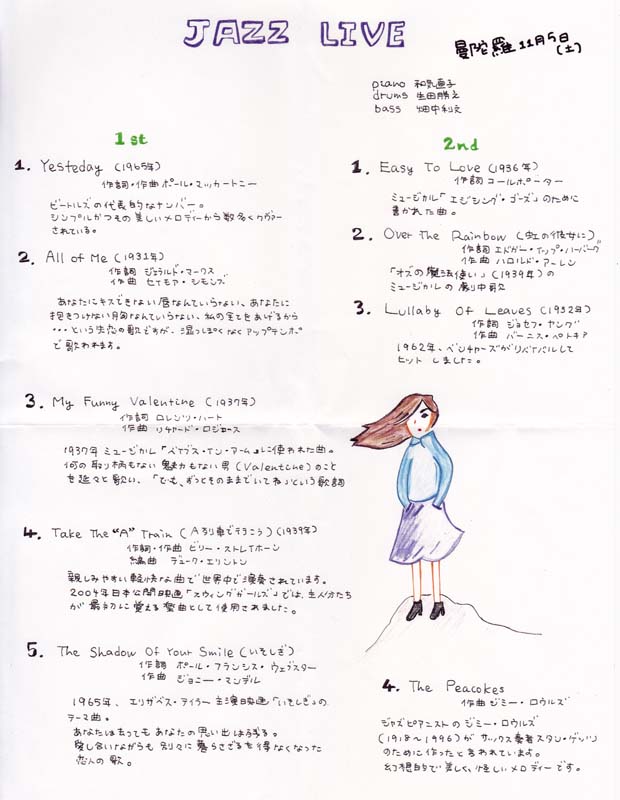 JAZZ LIVE
曼陀羅 11月5日
(土)
piano 和気直子
drums 生田勝之
bass 畑中利文
1st
1. Yesteday (1965年)
作詞・作曲 ポール・マッカートニー
ビートルズの代表的なナンバー。
シンプルかつその美しいメロディーから数多くカヴァー
されている。
2. All of Me (1931年)
作詞 ジェラルド・マークス
作曲 セイモア・シモンズ
あなたにキスできない唇なんていらない、あなたに
抱きつけない胸なんていらない、私の全てをあげるから
…という失恋の歌ですが、湿っぽくなくアップテンポ
で歌われます。
3. My Funny Valentine (1937年)
作詞 ロレンツ・ハート
作曲 リチャード・ロジャース
1937年 ミュージカル「ベイブス・イン・アーム」に使われた曲。
何の取り柄もない魅力もない男(Valentine)のこと
を延々と歌い、「でも、ずっとそのままでいてね」という歌詞
4. Take The "A" Train (A列車で行こう)(1939年)
作詞・作曲 ビリー・ストレイホーン
編曲 デューク・エリントン
親しみやすい軽快な曲で世界中で演奏されています。
2004年日本公開映画「スウィングガールズ」では、主人公たち
が最初に覚える楽曲として使用されました。
5. The Shadow Of Your Smile (いそしぎ)
作詞 ポール・フランシス・ウェブスター
作曲 ジョニー・マンデル
1965年、エリザベス・テイラー主演映画「いそしぎ」の
テーマ曲。
あなたは去ってもあなたの思い出は残る。
愛し合いながらも別々に暮らさざるを得なくなった
恋人の歌。
2nd
1. Easy To Love (1936年)
作詞 コールポーター
ミュージカル「エニシング・ゴーズ」のために
書かれた曲。
2. Over The Rainbow (虹の彼方に)
作詞 エドガー・イップ・ハーバーグ
作曲 ハロルド・アーレン
「オズの魔法使い」(1939年)の
ミュージカルの劇中歌
3. Lullaby Of Leaves (1932年)
作詞 ジョセフ・ヤング
作曲 バーニス・ペトキア
1962年、ベンチャーズがリバイバルして
ヒットしました。
4. The Peacokes
作曲 ジミー・ロウルズ
ジャズピアニストのジミー・ロウルズ
(1918〜1996)が サックス奏者スタン・ゲッツ
のために作ったと言われています。
幻想的で美しく、怪しいメロディーです。